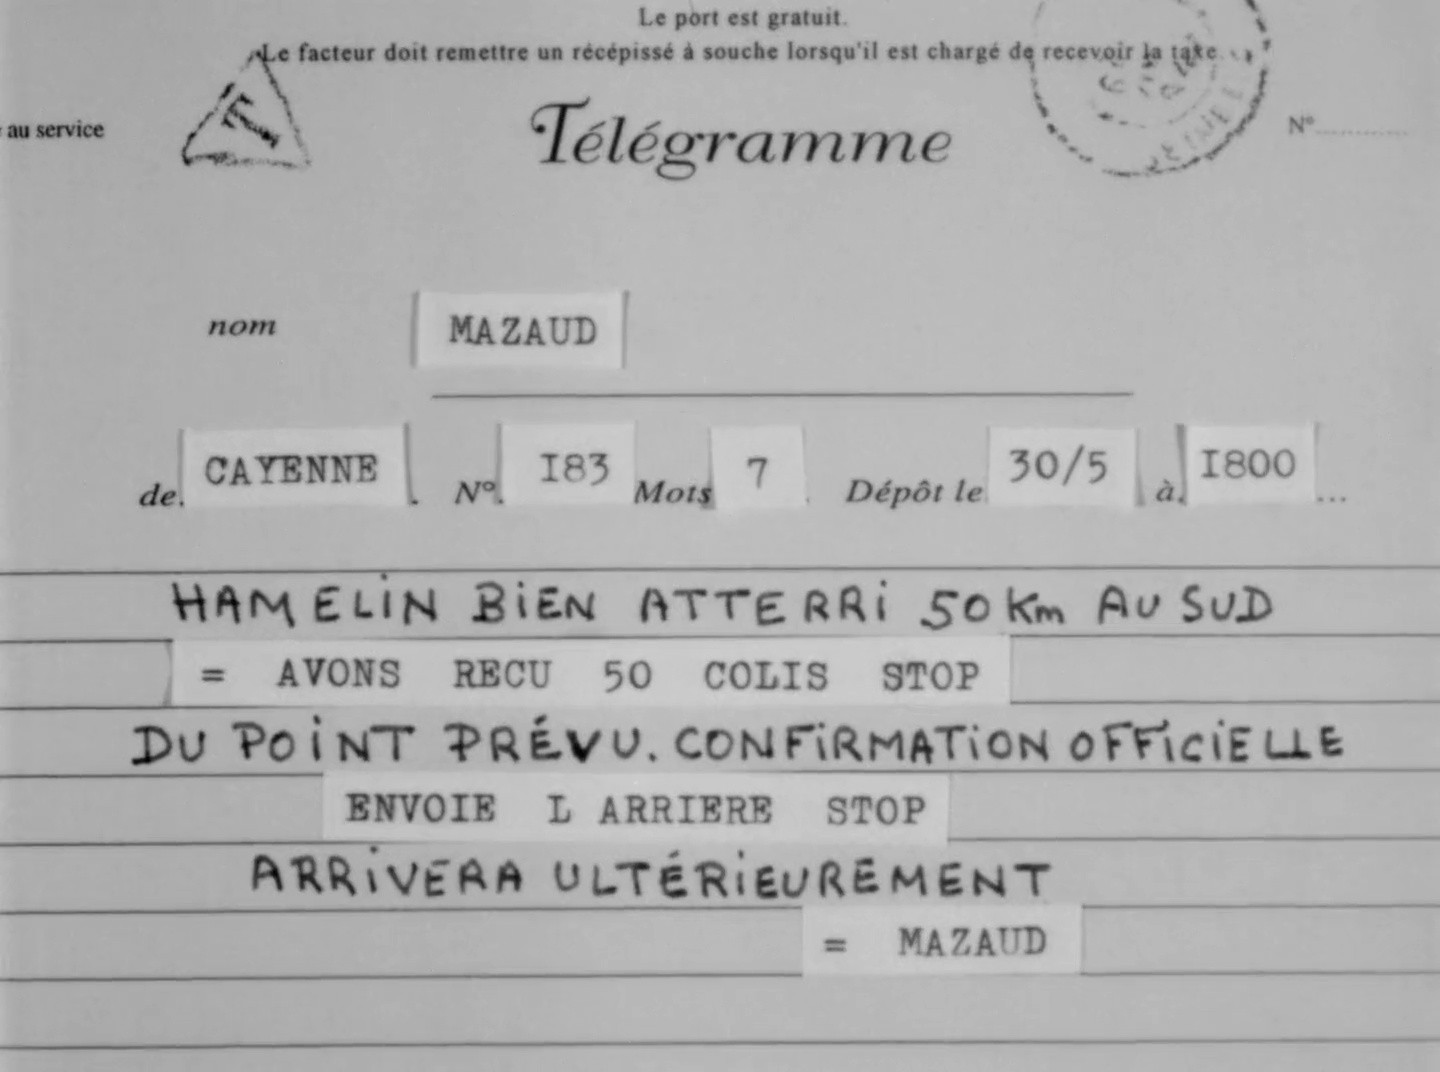 Le port est gratuit.
Le facteur doit remettre un récépissé à souche lorsqu'il est chargé de recevoir la taxe.
au service
T
Télégramme
N°
nom MAZAUD
de CAYENNE N° I83 Mots 7 Dépôt le 30/5 à I800
HAMELIN BIEN ATTERRI 50 Km AU SUD
= AVONS RECU 50 COLIS STOP
DU POINT PRÉVU. CONFIRMATION OFFICIELLE
ENVOIE L ARRIERE STOP
ARRIVERA ULTÉRIEUREMENT
= MAZAUD